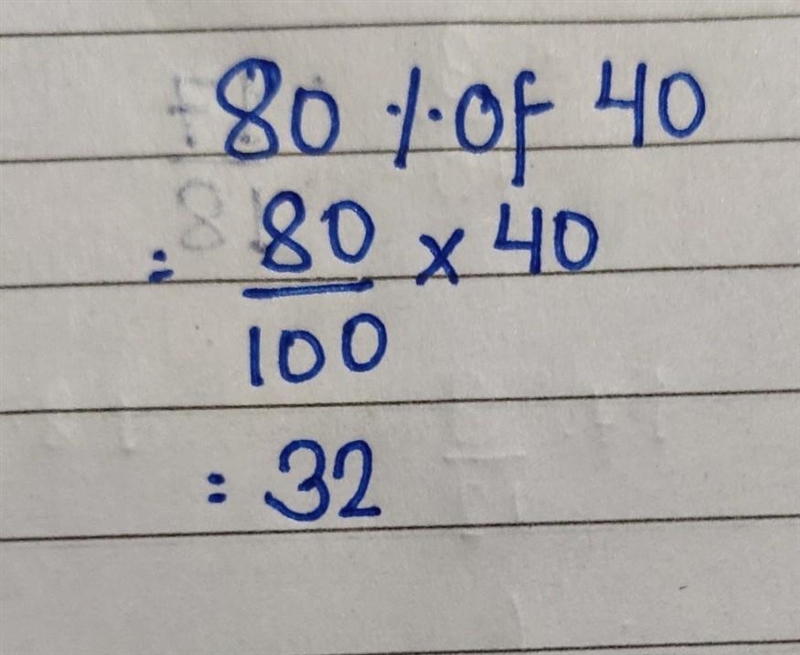 80 % of 40
= 80/100 × 40
= 32